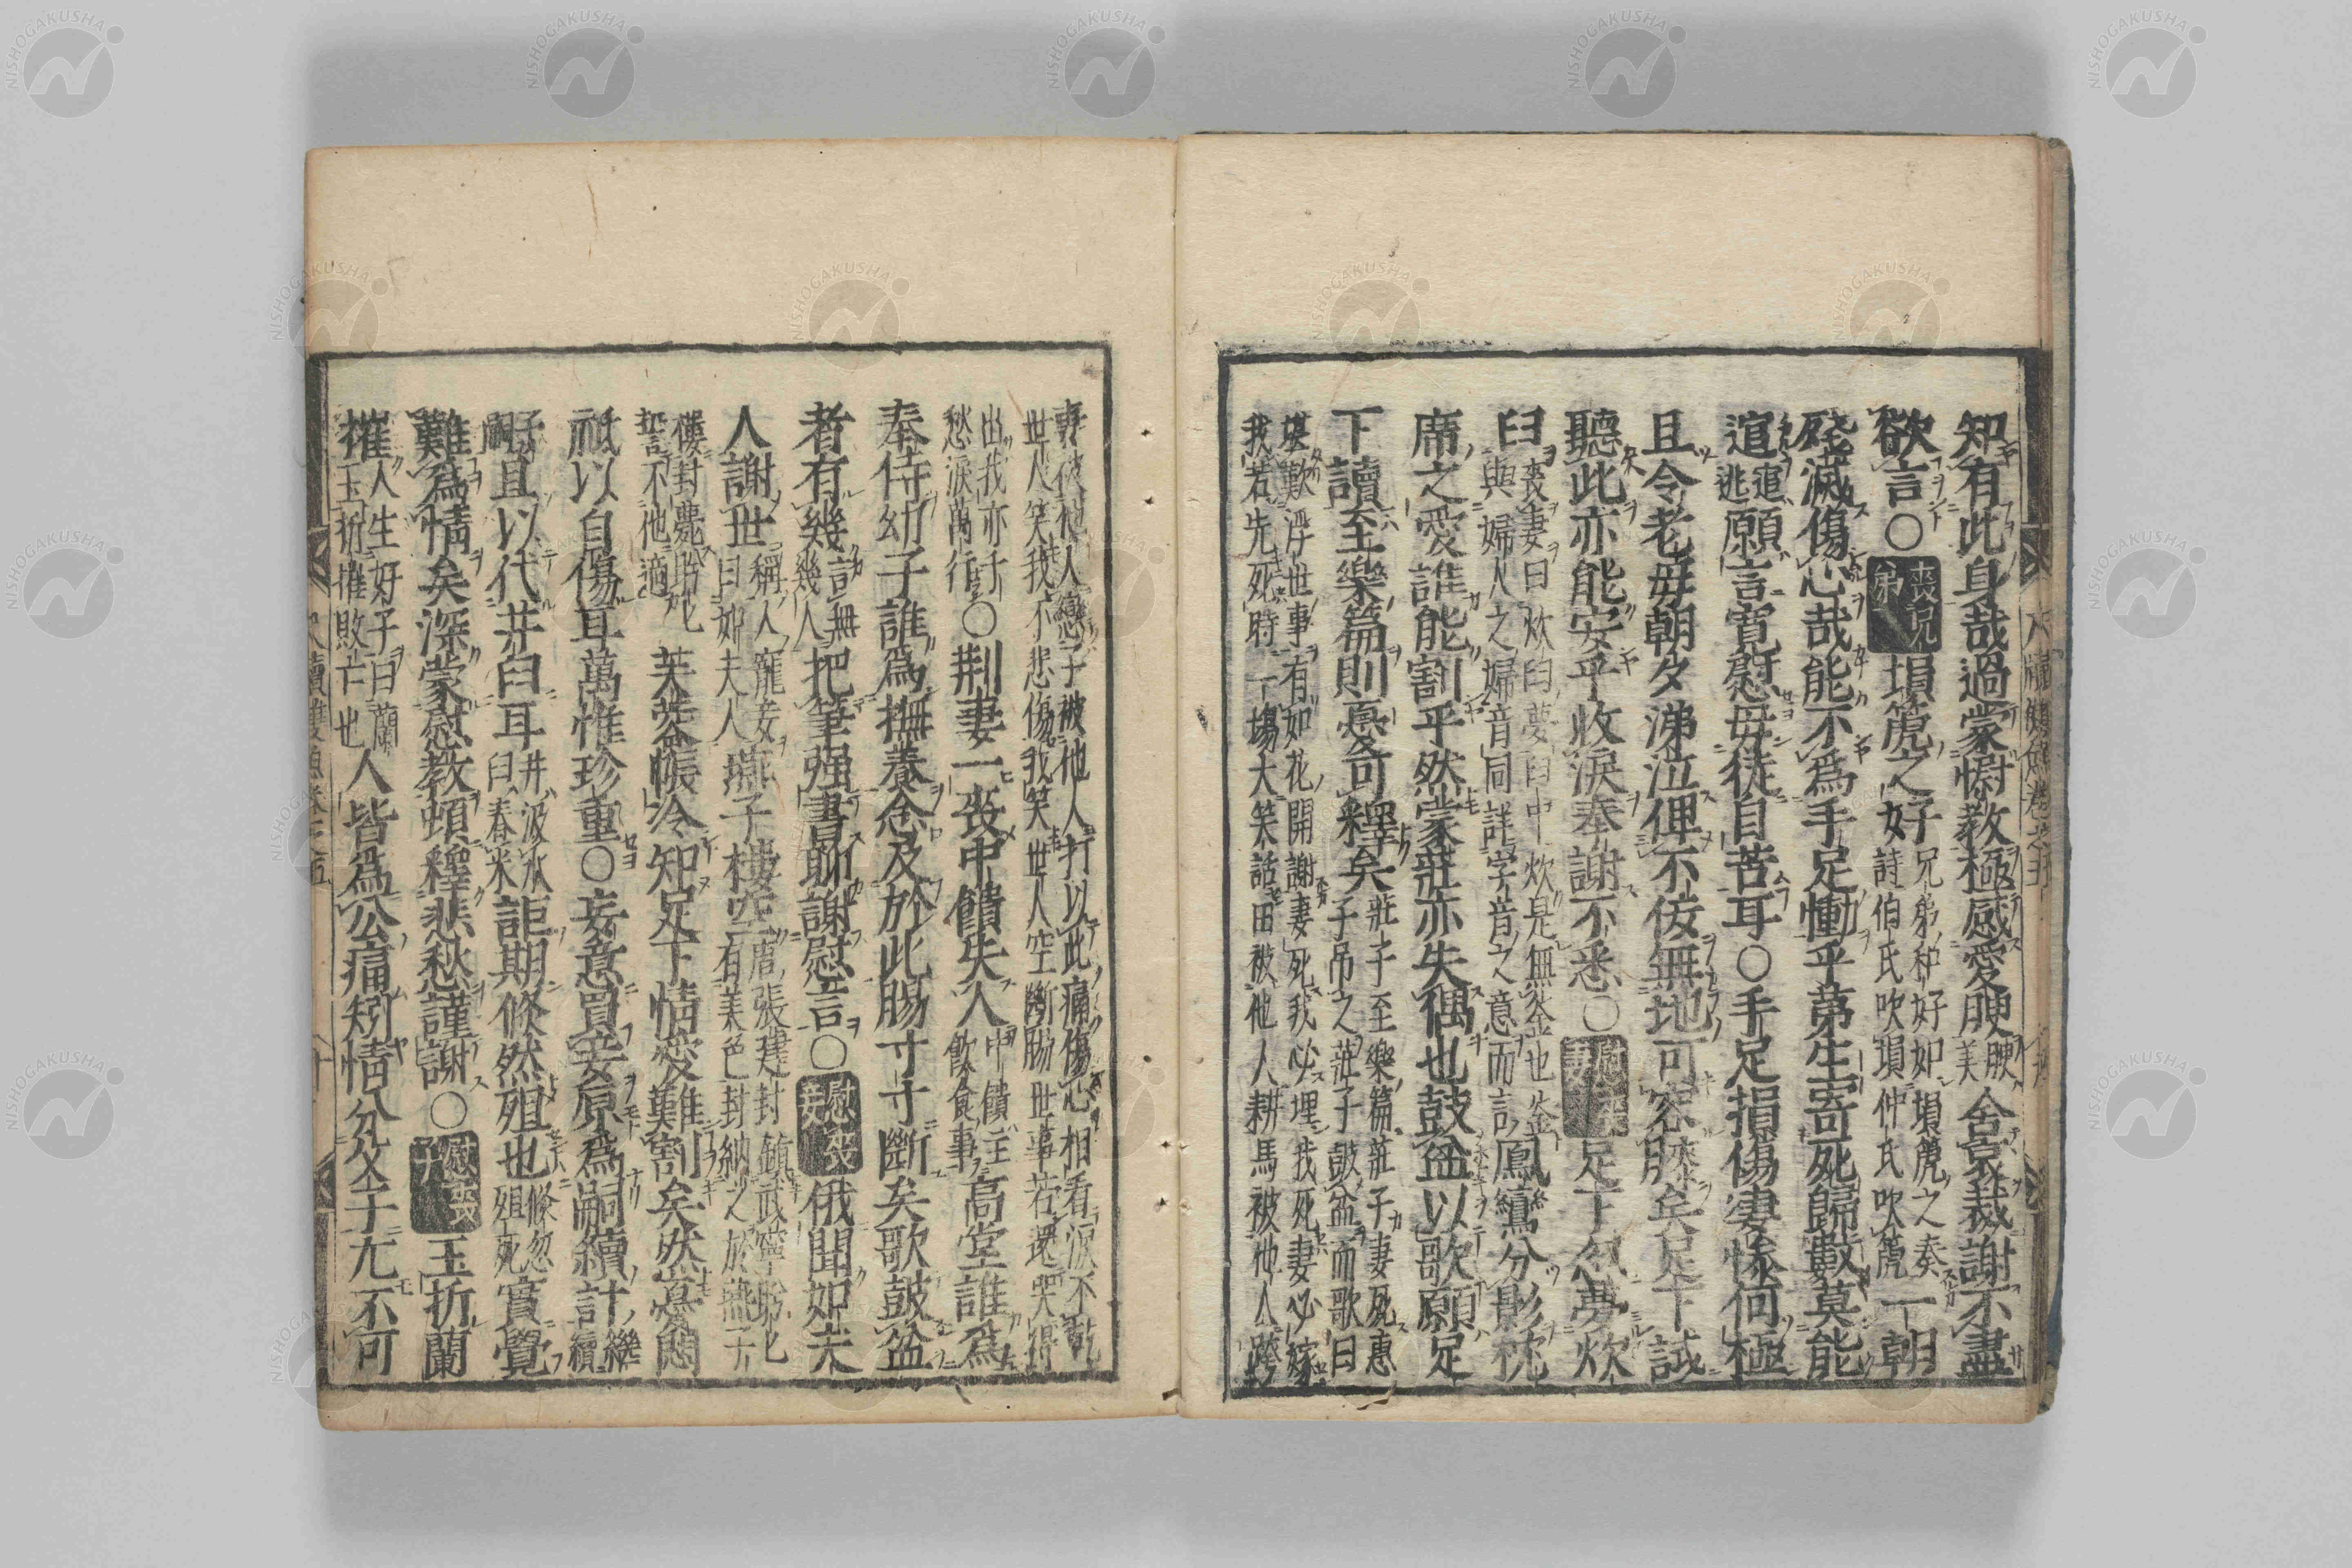 知有此身哉過蒙慰教極感愛腴腴美舍哀裁謝不盡
欲言○喪兄弟塤篪之好兄弟和好如塤篪之奏詩伯氏吹塤仲氏吹篪一朝
殘滅傷心哉能不爲手足慟乎第生寄死歸數莫能
逭逭逃願言寛慰毋徒自苦耳○手足損傷悽惨何極
且令老毋朝夕涕泣俾不佞無地可容脥矣足下誠
聽此亦能安乎收涙奉謝不悉○慰喪妻足下忽夢炊
臼喪妻曰炊臼夢臼中炊是無釜也釜與婦人之婦音同詳字音之意而言鳳鸞分影枕
席之愛誰能割乎然蒙莊亦失偶也鼓盆以歌願足
下讀至樂篇則憂可釋矣莊子至樂篇莊子妻死惠子吊之莊子鼓盆而歌曰
堪歎浮世事有如花開謝妻死我必埋我死妻必嫁
我若先死時一塲大笑話田被他人耕馬被他人跨
妻被他人戀子被他人打以此痛傷心相看涙不乾
世人笑我不悲傷我笑世人空斷腸世事若還哭得
出我亦千愁涙萬行○荆妻一喪中饋失人中饋主飲食事高堂誰爲
奉侍幼子誰爲撫養念及於此腸寸寸斷矣歌鼓盆
者有幾言無幾人把筆强書聊謝慰言○慰喪妾俄聞如夫
人謝世稱人寵妾曰如夫人燕子樓空唐張建封鎮武寧盼盼有美色封納之於燕子
樓封薨盼盼誓不他適芙蓉帳冷知足下情愛難割矣然寡愛悶
祗以自傷耳萬惟珍重○妾意買妾原爲嗣續計繼續
子嗣且以代井臼耳井汲水臼舂米詎期倏然殂也倏忽殂死實覺
難爲情矣深蒙慰教頓釋悲愁謹謝○慰喪子玉折蘭
摧人生好子曰蘭玉折摧敗亡也人皆爲公痛矧情分父子尤不可